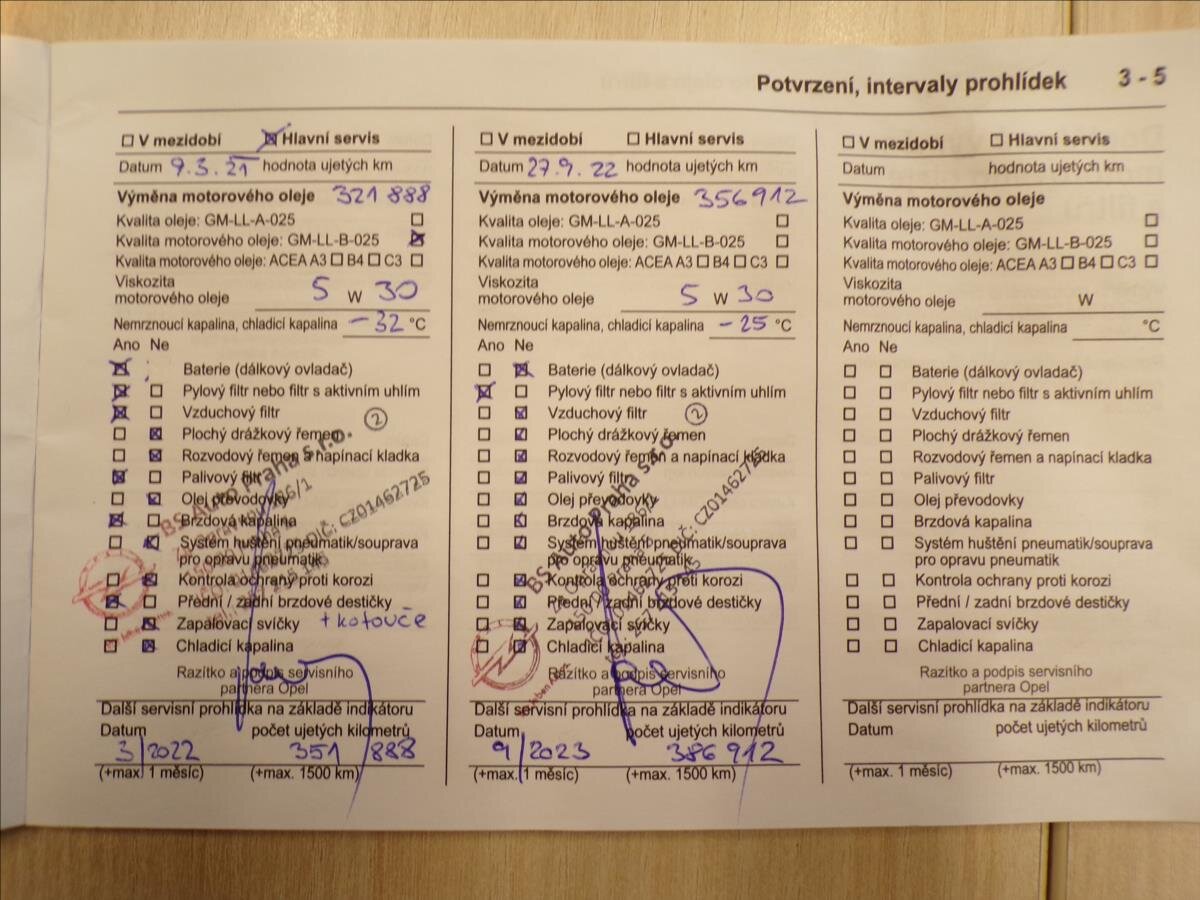 Potvrzení, intervaly prohlídek 3 - 5
☐ V mezidobí ☒ Hlavní servis
Datum 9.3.21 hodnota ujetých km
Výměna motorového oleje 321 888
Kvalita oleje: GM-LL-A-025 ☐
Kvalita motorového oleje: GM-LL-B-025 ☒
Kvalita motorového oleje: ACEA A3 ☐ B4 ☐ C3 ☐
Viskozita
motorového oleje 5 W 30
Nemrznoucí kapalina, chladicí kapalina -32 °C
Ano Ne
☒ Baterie (dálkový ovladač)
☒ ☐ Pylový filtr nebo filtr s aktivním uhlím
☒ ☐ Vzduchový filtr
②
☐ ☒ Plochý drážkový řemen
☐ ☒ Rozvodový řemen a napínací kladka
☒ ☐ Palivový filtr
☐ ☒ Olej převodovky
☒ ☐ Brzdová kapalina
☐ ☒ Systém huštění pneumatik/souprava
pro opravu pneumatik
☐ ☒ Kontrola ochrany proti korozi
☒ ☐ Přední / zadní brzdové destičky
☐ ☒ Zapalovací svíčky + kotouče
☐ ☒ Chladicí kapalina
BS Auto Praha s r.o.
DIČ: CZ01462725
Razítko a podpis servisního
partnera Opel
Další servisní prohlídka na základě indikátoru
Datum počet ujetých kilometrů
3/2022 351 888
(+max. 1 měsíc) (+max. 1500 km)
☐ V mezidobí ☐ Hlavní servis
Datum 27.9.22 hodnota ujetých km
Výměna motorového oleje 356912
Kvalita oleje: GM-LL-A-025 ☐
Kvalita motorového oleje: GM-LL-B-025 ☐
Kvalita motorového oleje: ACEA A3 ☐ B4 ☐ C3 ☐
Viskozita
motorového oleje 5 W 30
Nemrznoucí kapalina, chladicí kapalina -25 °C
Ano Ne
☐ ☒ Baterie (dálkový ovladač)
☒ ☐ Pylový filtr nebo filtr s aktivním uhlím
☐ ☒ Vzduchový filtr
②
☐ ☒ Plochý drážkový řemen
☐ ☒ Rozvodový řemen a napínací kladka
☐ ☒ Palivový filtr
☐ ☒ Olej převodovky
☐ ☒ Brzdová kapalina
☐ ☒ Systém huštění pneumatik/souprava
pro opravu pneumatik
☐ ☒ Kontrola ochrany proti korozi
☐ ☒ Přední / zadní brzdové destičky
☐ ☒ Zapalovací svíčky
☐ ☒ Chladicí kapalina
BS Auto Praha s r.o.
DIČ: CZ01462725
Razítko a podpis servisního
partnera Opel
Další servisní prohlídka na základě indikátoru
Datum počet ujetých kilometrů
9/2023 386 912
(+max. 1 měsíc) (+max. 1500 km)
☐ V mezidobí ☐ Hlavní servis
Datum hodnota ujetých km
Výměna motorového oleje
Kvalita oleje: GM-LL-A-025 ☐
Kvalita motorového oleje: GM-LL-B-025 ☐
Kvalita motorového oleje: ACEA A3 ☐ B4 ☐ C3 ☐
Viskozita
motorového oleje W
Nemrznoucí kapalina, chladicí kapalina °C
Ano Ne
☐ ☐ Baterie (dálkový ovladač)
☐ ☐ Pylový filtr nebo filtr s aktivním uhlím
☐ ☐ Vzduchový filtr
☐ ☐ Plochý drážkový řemen
☐ ☐ Rozvodový řemen a napínací kladka
☐ ☐ Palivový filtr
☐ ☐ Olej převodovky
☐ ☐ Brzdová kapalina
☐ ☐ Systém huštění pneumatik/souprava
pro opravu pneumatik
☐ ☐ Kontrola ochrany proti korozi
☐ ☐ Přední / zadní brzdové destičky
☐ ☐ Zapalovací svíčky
☐ ☐ Chladicí kapalina
Razítko a podpis servisního
partnera Opel
Další servisní prohlídka na základě indikátoru
Datum počet ujetých kilometrů
(+max. 1 měsíc) (+max. 1500 km)